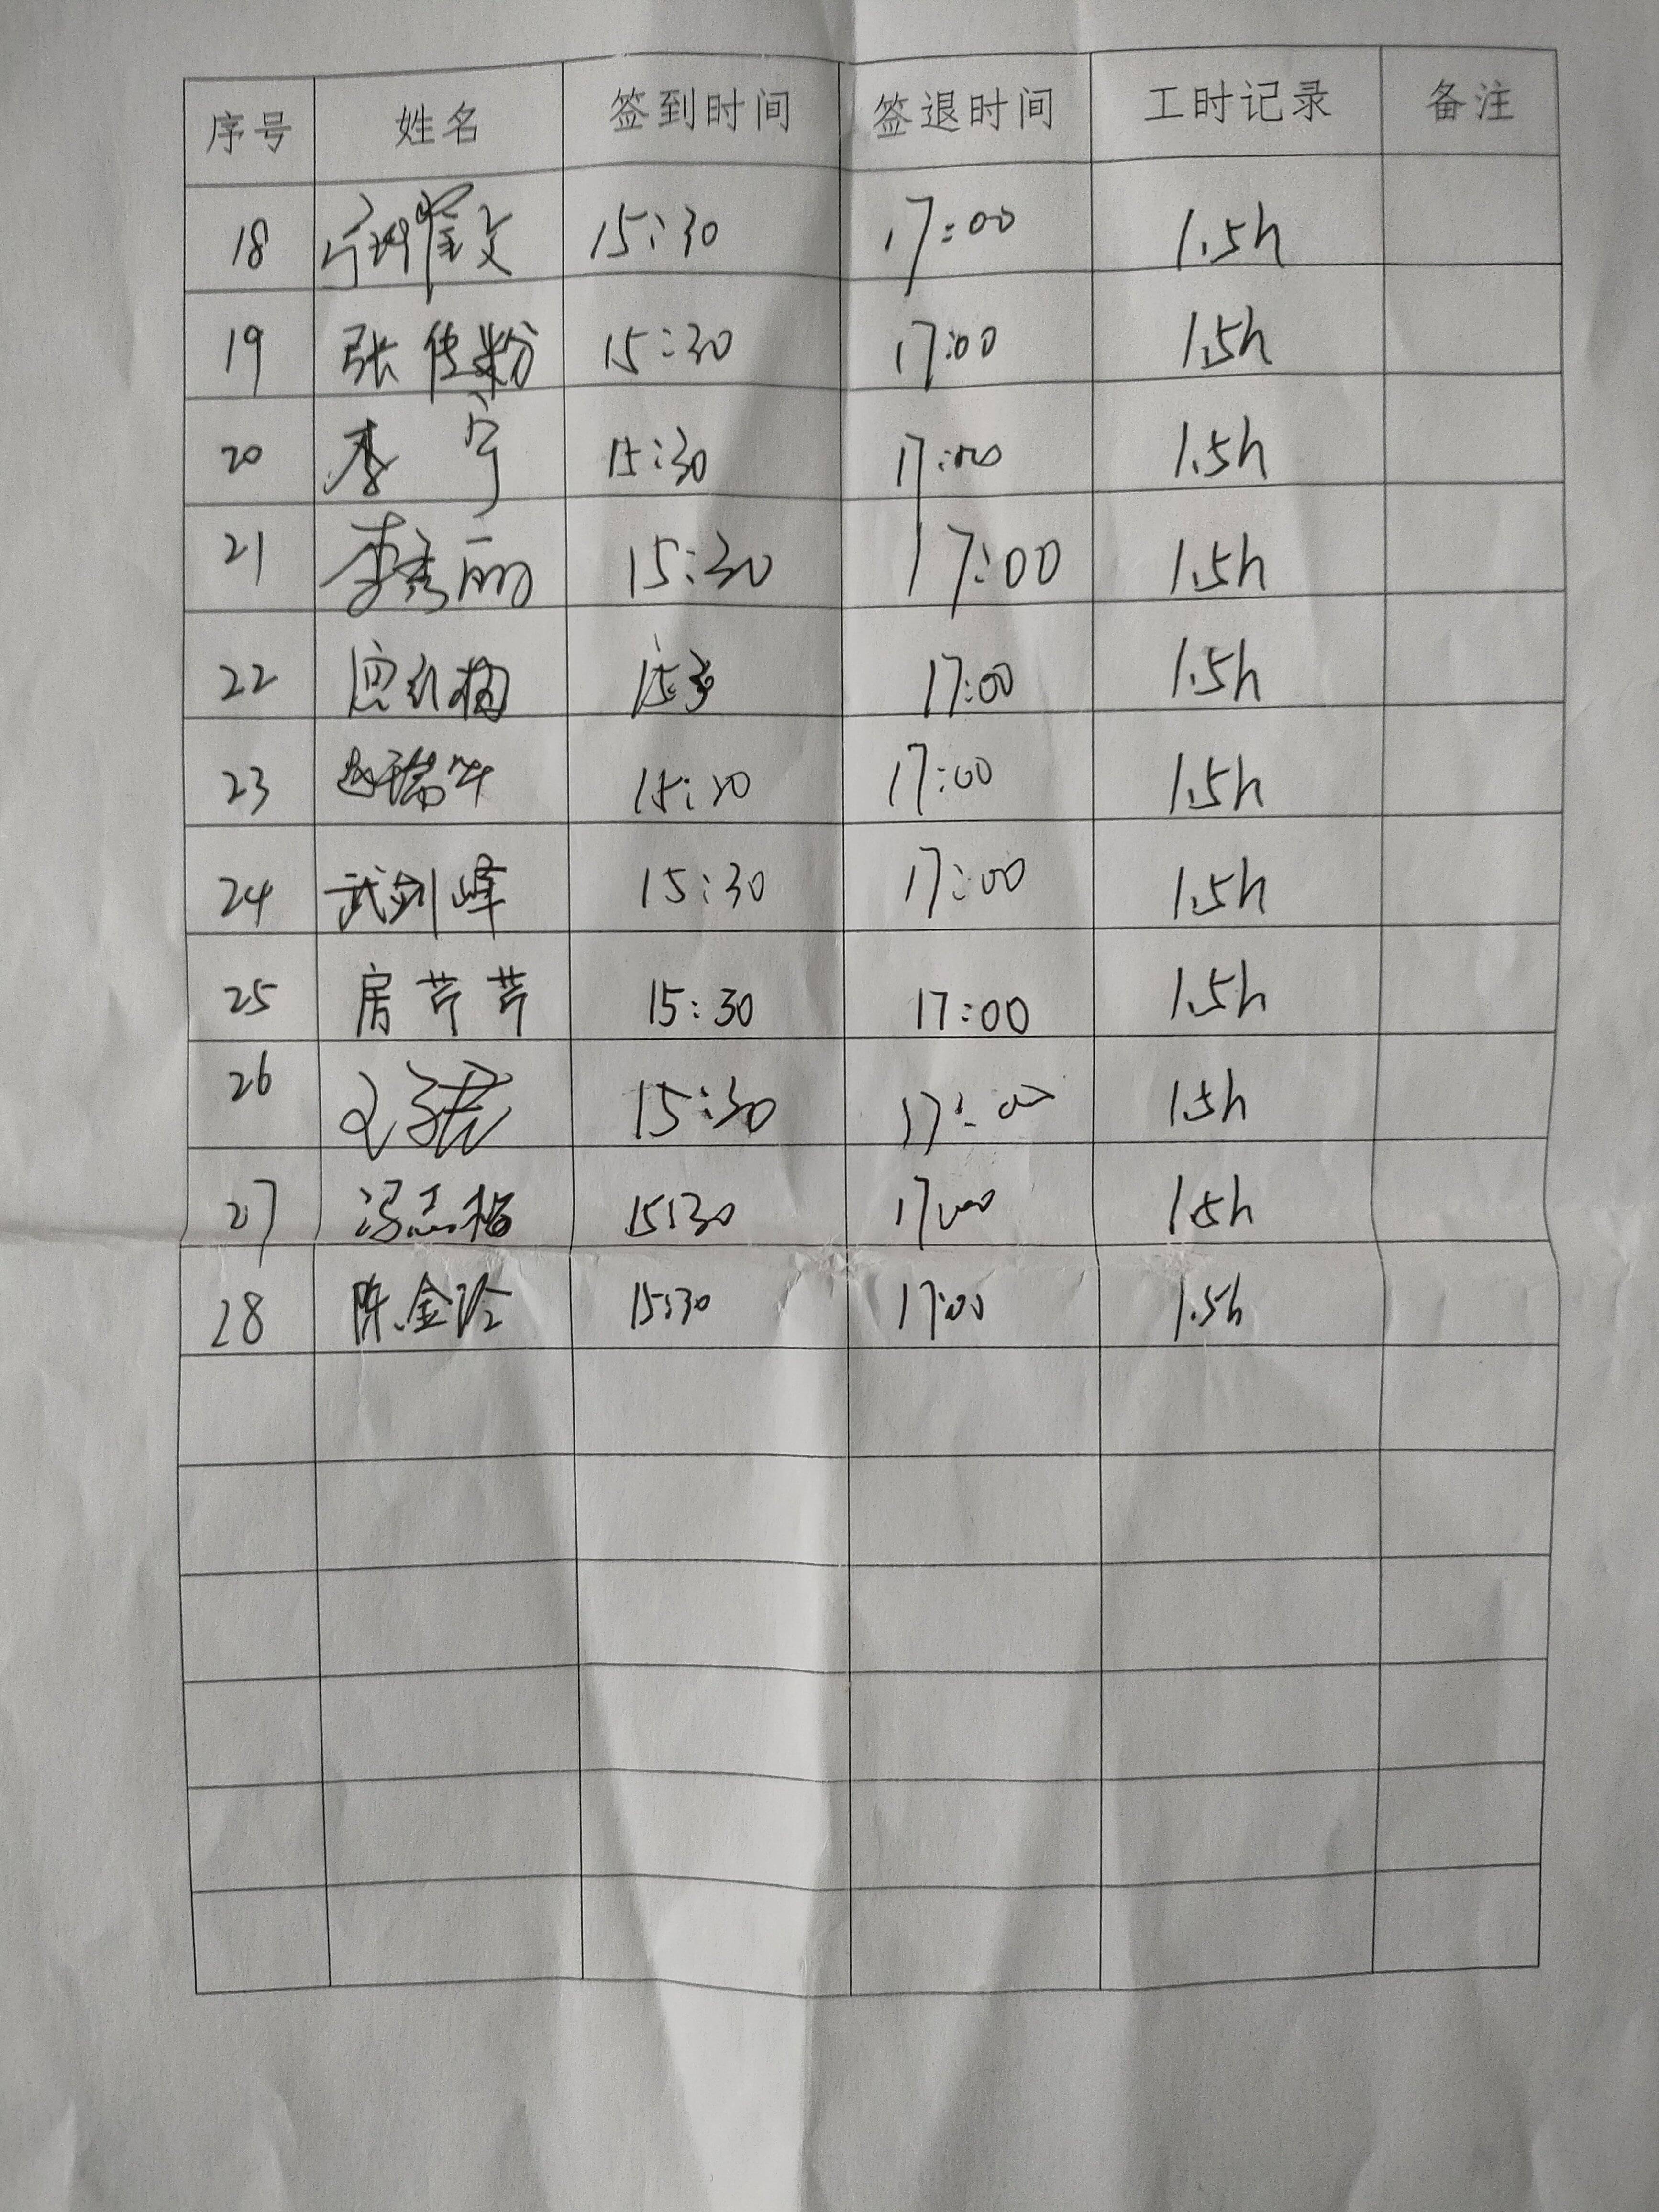 序号 姓名 签到时间 签退时间 工时记录 备注
18 15:30 17:00 1.5h
19 张传粉 15:30 17:00 1.5h
20 李宁 15:30 17:00 1.5h
21 李秀丽 15:30 17:00 1.5h
22 17:00 1.5h
23 赵瑞华 15:30 17:00 1.5h
24 武剑峰 15:30 17:00 1.5h
25 房芹芹 15:30 17:00 1.5h
26 15:30 17:00 1.5h
27 15:30 17:00 1.5h
28 陈金玲 15:30 17:00 1.5h